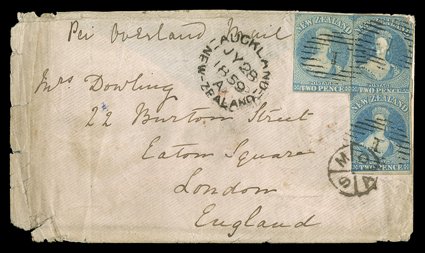 Per Overland Mail
AUCKLAND
JY 28
1859
A
NEW-ZEALAND
NEW ZEALAND
TWO PENCE
NEW ZEALAND
TWO PENCE
NEW ZEALAND
TWO PENCE
Mrs Dowling
22 Burton Street
Eaton Square
London
England